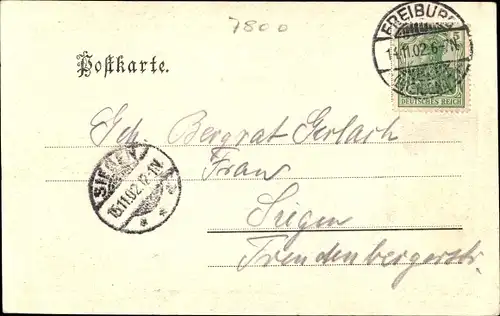 7800
FREIBURG
14.11.02.6-7N.
5
DEUTSCHES REICH
Postkarte.
Geh. Bergrat Gerlach
Frau
SIEGEN
15.11.02.12-1N.
Siegen
Freudenbergerstr.